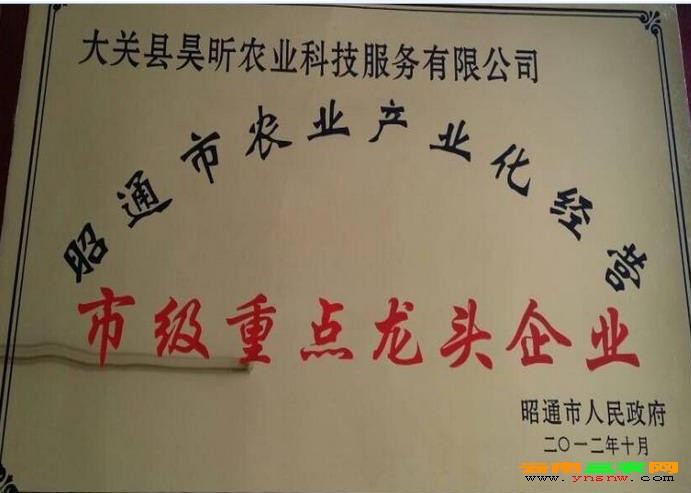 大关县昊昕农业科技服务有限公司
昭通市农业产业化经营
市级重点龙头企业
昭通市人民政府
二〇一二年十月
云南三农网
www.ynsnw.com